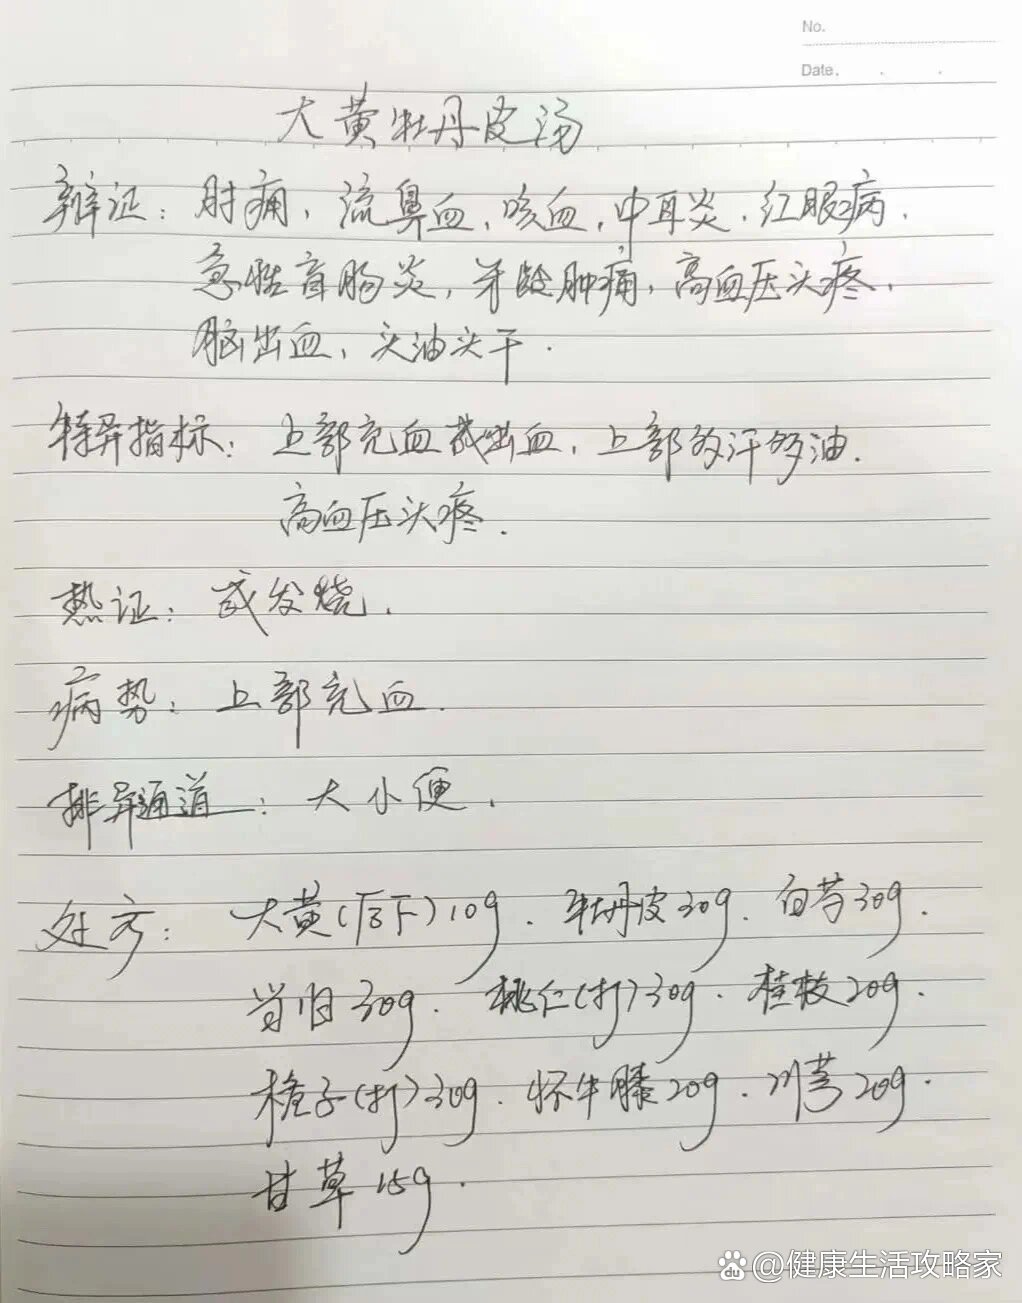 No.
Date.
大黄牡丹皮汤
辩证：肘痛、流鼻血、咳血、中耳炎、红眼病、
急性盲肠炎，牙龈肿痛，高血压头疼，
脑出血、头油头汗.
特异指标：上部充血或出血，上部多汗多油.
高血压头疼.
热证：或发烧.
病势：上部充血.
排异通道：大小便.
处方：大黄(后下)10g. 牡丹皮30g. 白芍30g.
当归30g. 桃仁(打)30g. 桂枝20g.
栀子(打)30g. 怀牛膝20g. 川芎20g.
甘草15g.
du @健康生活攻略家